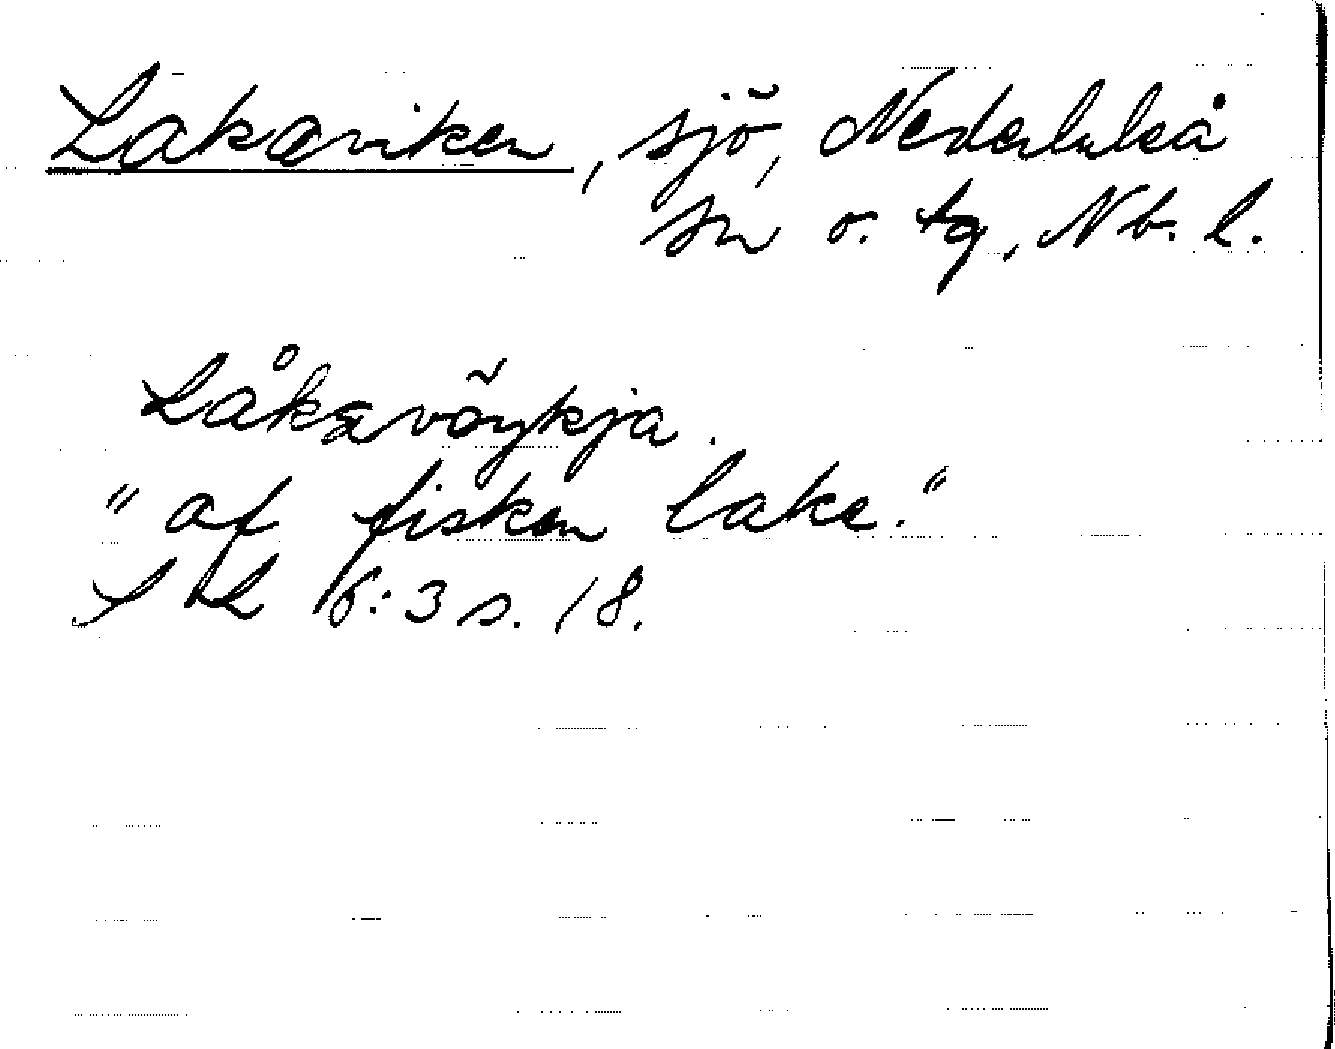 Lakaviken, sjö, Nederluleå
sn o. tg, Nb. l.
Låkavöykja.
"af fisken lake."
S o L 6:3 s. 18.